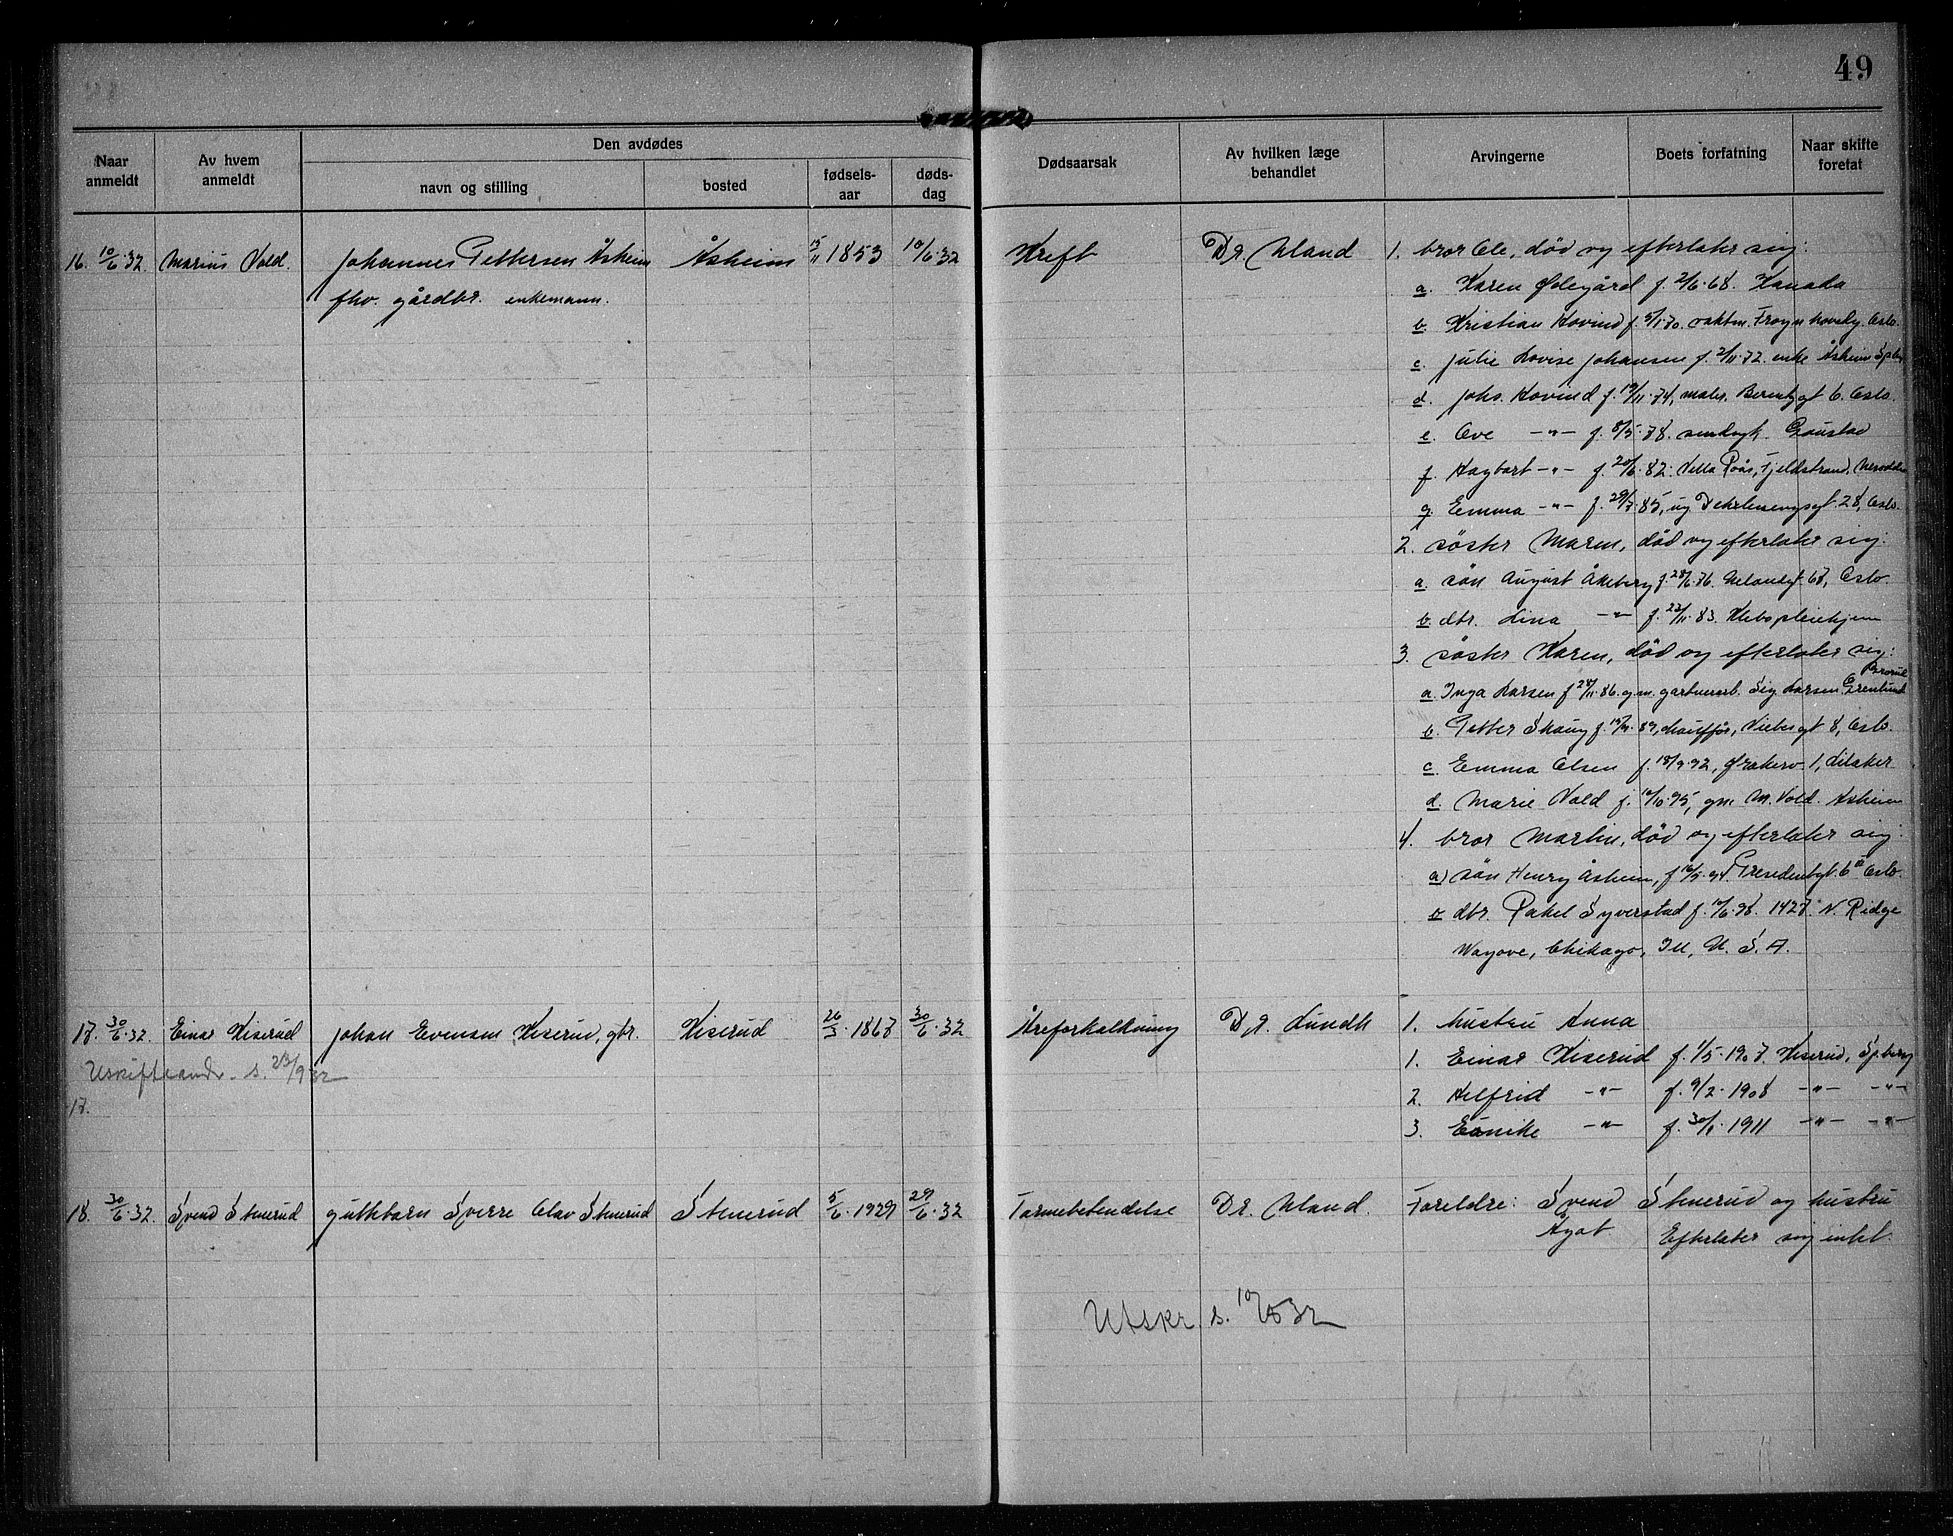 49
Naar anmeldt
Av hvem anmeldt
Den avdødes
navn og stilling
bosted
fødsels-aar
døds-dag
Dødsaarsak
Av hvilken læge behandlet
Arvingerne
Boets forfatning
Naar skifte foretat
16. 10/6.32. Marius Vold. Johannes Pettersen Åsheim Åsheim 15/11 1853 10/6.32 Kreft Dr. Uland 1. bror Ole, død og efterlater sig:
fhv. gårdbr. enkemann.
a. Karen Ødegård f. 2/6.68. Kanada
b. Kristian Hovind f. 5/1.70. vaktm. Frogn hovedg. Oslo.
c. Julie Lovise Johansen f. 2/11.72. enke Åsheim Spbrg
d. Johs. Hovind f. 19/11.74, maler. Berentzgt 6. Oslo.
e. Ove -"- f. 8/5.78. sinds Gaustad
f. Hagbart -"- f. 20/6.82. Villa Roås, Fjeldstrand, Nesodden
g. Emma -"- f. 29/7.85, ug 28, Oslo.
2. søster Maren, død og efterlater sig:
a. søn August Åkeberg f. 28/6.76. 68, Oslo.
b. dtr. Lina -"- f. 23/11.83. pleiehjem
3. søster Karen, død og efterlater sig:
a. Inga Larsen f 24/11.86. g.m. gartnerarb. Sig. Larsen
b. Petter Skaug f. 89, chauffør, Niels gt 8, Oslo.
c. Emma Olsen f. 18/9.92, 1, Lilaker
d. Marie Vold f. 10/10.95, gm. M. Vold. Åsheim
4. bror Martin, død og efterlater sig:
a) søn Henry Åsheim, f 94. 6 Oslo.
b dtr. Rakel Syverstad f. 98. 1427. N. Ridge
Wayove, Chikago, Ill, U. S. A.
17. 30/6.32. Einar Kiserud Johan Evensen Kiserud, gbr. Kiserud 26/3.1867 30/6.32 Åreforkalkning Dr. Lundh 1. hustru Anna
1. Einar Kiserud f. 1/5.1907. Kiserud, Spberg
Uskifteandr. s. 23/9 32
2. Helfrid -"- f. 9/2.1908 -"- -"-
17.
3. Eunike -"- f. 30/1.1911 -"- -"-
18. 30/6.32. Svend Stenerud guttebarn Sverre Olav Stenerud Stenerud 5/6.1929 29/6.32 Tarmebetendelse Dr. Uland. Foreldre: Svend Stenerud og hustru
Agat Efterlater sig intet.
Utskr. s. 10/8 32